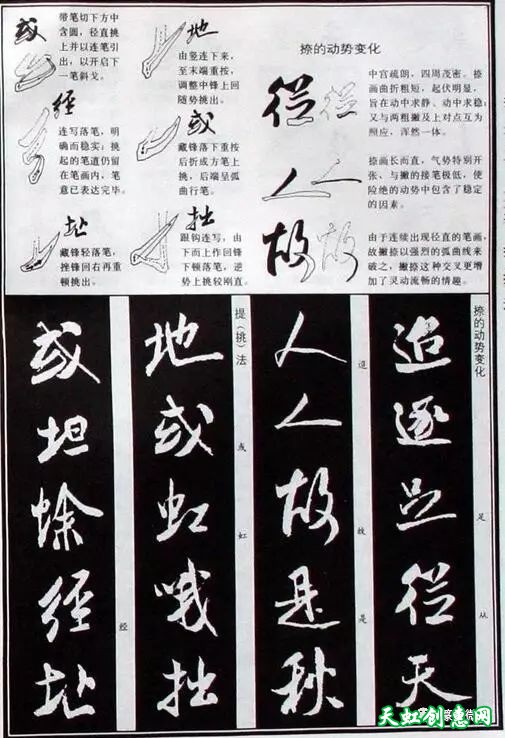 或
带笔切下方中
含圆，径直挑
上并以连笔引
出，以开启下
一笔斜戈。
經
连写落笔，明
确而稳实；挑
起的笔道仍留
在笔画内，笔
意已表达完毕。
址
藏锋轻落笔，
挫锋回右再重
顿挑出。
地
由竖连下来，
至末端重按，
调整中锋上回
随势挑出。
或
藏锋落下重按
后折成方笔上
挑，后端呈弧
曲行笔。
拙
跟钩连写，由
下而上作回锋
下顿落笔，逆
势上挑较刚直。
捺的动势变化
從
中宫疏朗，四周茂密。捺
画曲折粗短，起伏明显，
旨在动中求静。动中求稳
又与两粗撇及上对点互为
照应，浑然一体。
人
捺画长而直，气势特别开
张、与撇的接笔极低，使
险绝的动势中包含了稳定
的因素。
故
由于连续出现径直的笔画，
故撇捺以强烈的弧曲线来
破之，撇捺这种交叉更增
加了灵动流畅的情趣。
捺的动势变化
追逐足從天
足从
人人故是秋
退故是
提(挑)法
地或虹哦拙
或虹
或坦蜍經址
经
天虹创意网